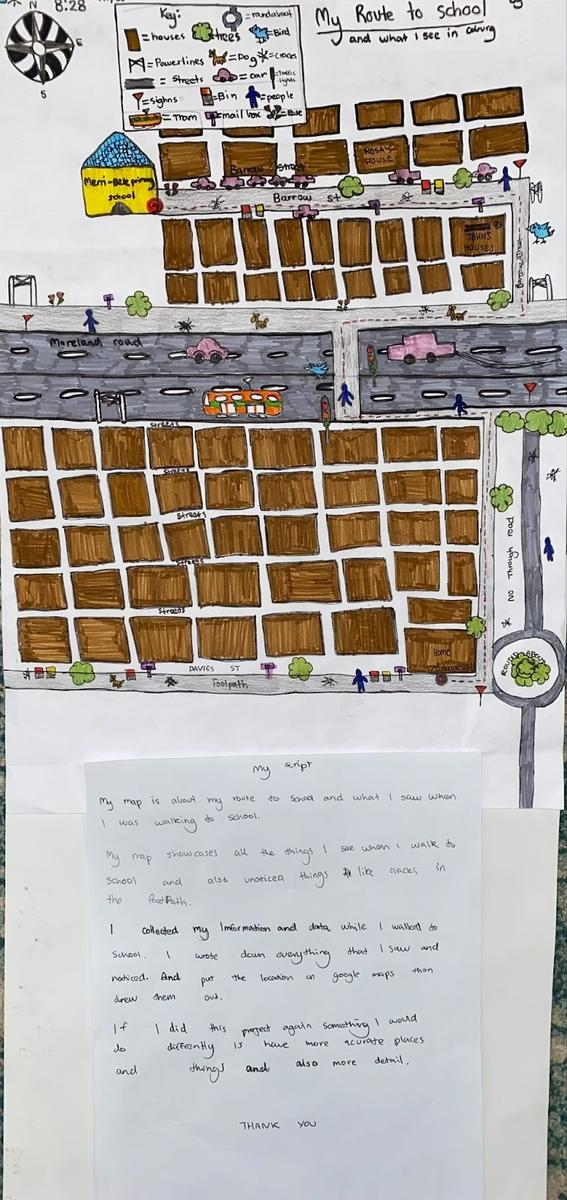 N 8:28
E
S
My Route to school
and what I see in coburg
Key:
= houses
= trees
= roundabout
= Bird
= Powerlines
= Dog
= cracks
= streets
= car
= traffic lights
= sighns
= Bin
= people
= Tram
= mail box
= Rose
Merri-Bek primary
school
ROSA'S
HOUSE
Barrow street
Barrow st
JOHNS
HOUSE!
Moreland road
Streets
Streets
Streets
Streets
Streets
NO Through road
Home
ROUND ABOUT
DAVIES ST
footpath
My script
My map is about my route to school and what I saw when
I was walking to school.
My map showcases all the things I see when I walk to
school and also unoticed things like cracks in
the footpath.
I collected my Information and data while I walked to
school. I wrote down everything that I saw and
noticed. And put the location on google maps then
drew them out.
If I did this project again something I would
do differently is have more acurate places
and things and also more detail.
THANK YOU